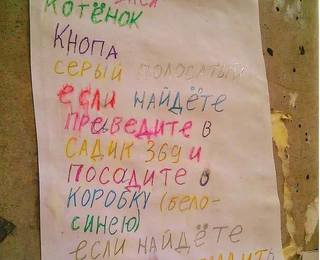 КОТЁНОК
КНОПА
СЕРЫЙ ПОЛОСАТЫЙ
ЕСЛИ НАЙДЁТЕ
ПРЕВЕДИТЕ В
САДИК 369 И
ПОСАДИТЕ В
КОРОБКУ (БЕЛО-
СИНЕЮ)
ЕСЛИ НАЙДЁТЕ